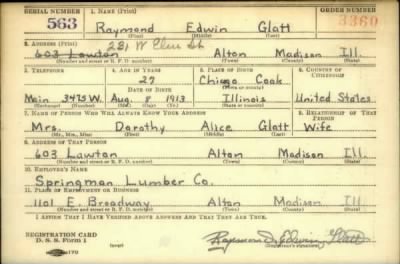 SERIAL NUMBER 1. NAME (Print) ORDER NUMBER
563 Raymond Edwin Glatt 3360
(First) (Middle) (Last)
2. ADDRESS (Print) 231 W Elm St
603 Lawton Alton Madison Ill.
(Number and street or R. F. D. number) (Town) (County) (State)
3. TELEPHONE 4. AGE IN YEARS 5. PLACE OF BIRTH 6. COUNTRY OF CITIZENSHIP
27 Chicago Cook
DATE OF BIRTH (Town or county)
Main 3435W. Aug. 8 1913 Illinois United States
(Exchange) (No.) (Mo.) (Day) (Yr.) (State or country)
7. NAME OF PERSON WHO WILL ALWAYS KNOW YOUR ADDRESS 8. RELATIONSHIP OF THAT PERSON
Mrs. Dorothy Alice Glatt Wife
(Mr., Mrs., Miss) (First) (Middle) (Last)
9. ADDRESS OF THAT PERSON
603 Lawton Alton Madison Ill.
(Number and street or R. F. D. number) (Town) (County) (State)
10. EMPLOYER'S NAME
Springman Lumber Co.
11. PLACE OF EMPLOYMENT OR BUSINESS
1101 E. Broadway Alton Madison Ill
(Number and street or R. F. D. number) (Town) (County) (State)
I AFFIRM THAT I HAVE VERIFIED ABOVE ANSWERS AND THAT THEY ARE TRUE.
REGISTRATION CARD
D. S. S. Form 1 (over) Raymond Edwin Glatt
(Registrant's signature)